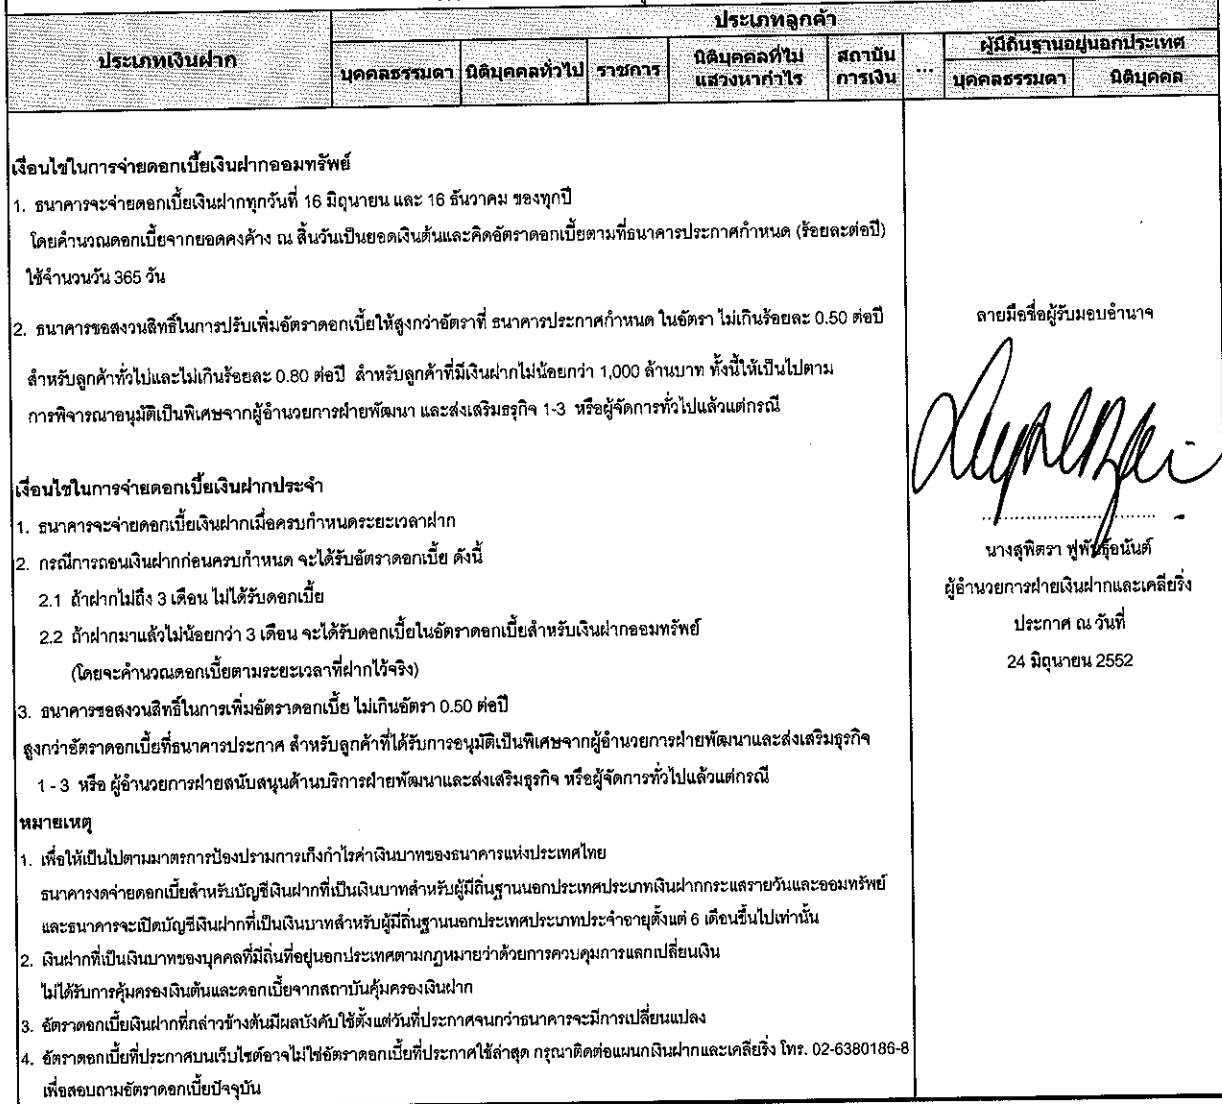 ประเภทลูกค้า
ประเภทเงินฝาก
บุคคลธรรมดา
นิติบุคคลทั่วไป
ราชการ
นิติบุคคลที่ไม่
แสวงหากำไร
สถาบัน
การเงิน
...
ผู้มีถิ่นฐานอยู่นอกประเทศ
บุคคลธรรมดา
นิติบุคคล
เงื่อนไขในการจ่ายดอกเบี้ยเงินฝากออมทรัพย์
1. ธนาคารจะจ่ายดอกเบี้ยเงินฝากทุกวันที่ 16 มิถุนายน และ 16 ธันวาคม ของทุกปี
โดยคำนวณดอกเบี้ยจากยอดคงค้าง ณ สิ้นวันเป็นยอดเงินต้นและคิดอัตราดอกเบี้ยตามที่ธนาคารประกาศกำหนด (ร้อยละต่อปี)
ใช้จำนวนวัน 365 วัน
2. ธนาคารขอสงวนสิทธิ์ในการปรับเพิ่มอัตราดอกเบี้ยให้สูงกว่าอัตราที่ ธนาคารประกาศกำหนด ในอัตรา ไม่เกินร้อยละ 0.50 ต่อปี
สำหรับลูกค้าทั่วไปและไม่เกินร้อยละ 0.80 ต่อปี สำหรับลูกค้าที่มีเงินฝากไม่น้อยกว่า 1,000 ล้านบาท ทั้งนี้ให้เป็นไปตาม
การพิจารณาอนุมัติเป็นพิเศษจากผู้อำนวยการฝ่ายพัฒนา และส่งเสริมธุรกิจ 1-3 หรือผู้จัดการทั่วไปแล้วแต่กรณี
เงื่อนไขในการจ่ายดอกเบี้ยเงินฝากประจำ
1. ธนาคารจะจ่ายดอกเบี้ยเงินฝากเมื่อครบกำหนดระยะเวลาฝาก
2. กรณีการถอนเงินฝากก่อนครบกำหนด จะได้รับอัตราดอกเบี้ย ดังนี้
2.1 ถ้าฝากไม่ถึง 3 เดือน ไม่ได้รับดอกเบี้ย
2.2 ถ้าฝากมาแล้วไม่น้อยกว่า 3 เดือน จะได้รับดอกเบี้ยในอัตราดอกเบี้ยสำหรับเงินฝากออมทรัพย์
(โดยจะคำนวณดอกเบี้ยตามระยะเวลาที่ฝากไว้จริง)
3. ธนาคารขอสงวนสิทธิ์ในการเพิ่มอัตราดอกเบี้ย ไม่เกินอัตรา 0.50 ต่อปี
สูงกว่าอัตราดอกเบี้ยที่ธนาคารประกาศ สำหรับลูกค้าที่ได้รับการอนุมัติเป็นพิเศษจากผู้อำนวยการฝ่ายพัฒนาและส่งเสริมธุรกิจ
1 - 3 หรือ ผู้อำนวยการฝ่ายสนับสนุนด้านบริการฝ่ายพัฒนาและส่งเสริมธุรกิจ หรือผู้จัดการทั่วไปแล้วแต่กรณี
หมายเหตุ
1. เพื่อให้เป็นไปตามมาตรการป้องปรามการเก็งกำไรค่าเงินบาทของธนาคารแห่งประเทศไทย
ธนาคารงดจ่ายดอกเบี้ยสำหรับบัญชีเงินฝากที่เป็นเงินบาทสำหรับผู้มีถิ่นฐานนอกประเทศประเภทเงินฝากกระแสรายวันและออมทรัพย์
และธนาคารจะเปิดบัญชีเงินฝากที่เป็นเงินบาทสำหรับผู้มีถิ่นฐานนอกประเทศประเภทประจำอายุตั้งแต่ 6 เดือนขึ้นไปเท่านั้น
2. เงินฝากที่เป็นเงินบาทของบุคคลที่มีถิ่นที่อยู่นอกประเทศตามกฎหมายว่าด้วยการควบคุมการแลกเปลี่ยนเงิน
ไม่ได้รับการคุ้มครองเงินต้นและดอกเบี้ยจากสถาบันคุ้มครองเงินฝาก
3. อัตราดอกเบี้ยเงินฝากที่กล่าวข้างต้นมีผลบังคับใช้ตั้งแต่วันที่ประกาศจนกว่าธนาคารจะมีการเปลี่ยนแปลง
4. อัตราดอกเบี้ยที่ประกาศบนเว็บไซต์อาจไม่ใช่อัตราดอกเบี้ยที่ประกาศใช้ล่าสุด กรุณาติดต่อแผนกเงินฝากและเคลียริ่ง โทร. 02-6380186-8
เพื่อสอบถามอัตราดอกเบี้ยปัจจุบัน
ลายมือชื่อผู้รับมอบอำนาจ
นางสุพิตรา ฟูพันธุ์อนันต์
ผู้อำนวยการฝ่ายเงินฝากและเคลียริ่ง
ประกาศ ณ วันที่
24 มิถุนายน 2552